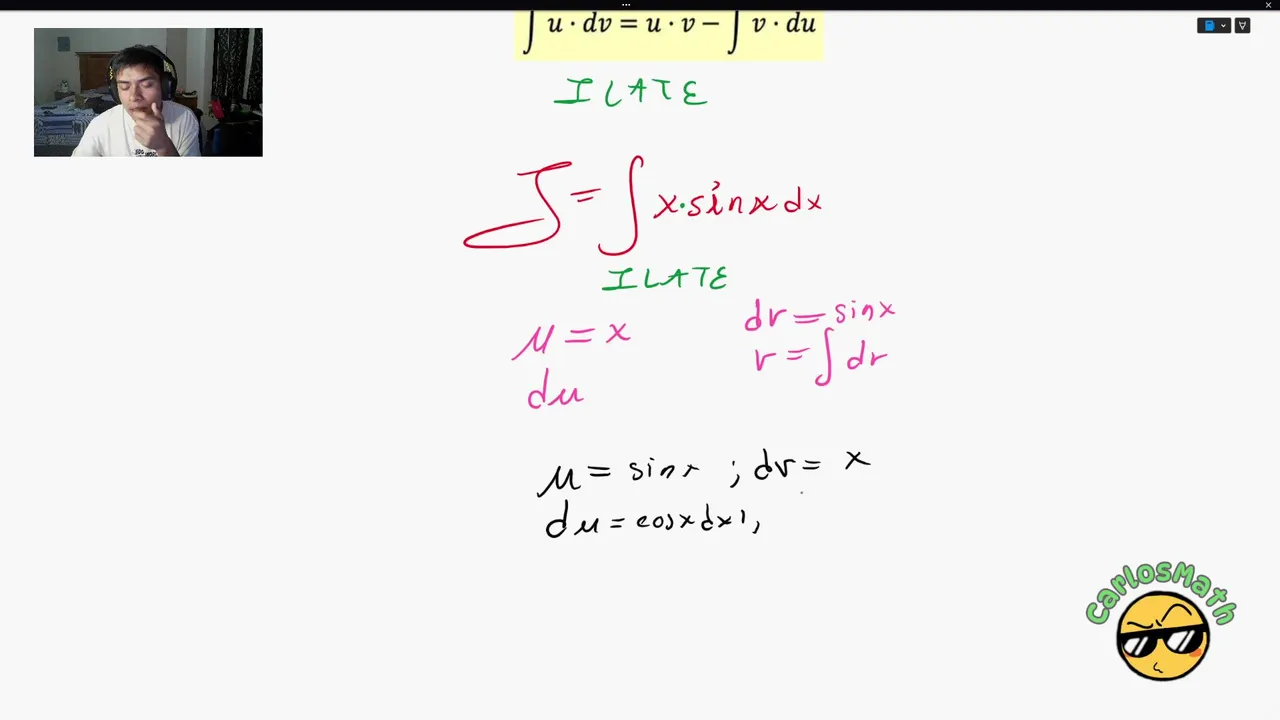 ∫ u · dv = u · v − ∫ v · du
ILATE
J = ∫ x·sinx dx
ILATE
u = x
dv = sinx
du
v = ∫ dv
u = sinx ; dv = x
du = cosx dx1,
CarlosMath